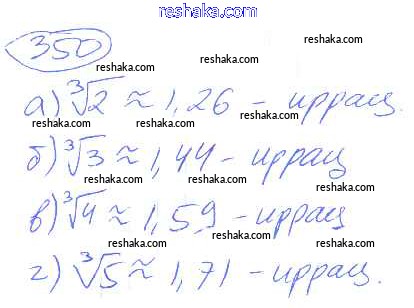 reshaka.com
350
reshaka.com
reshaka.com reshaka.com
а) ∛2 ≈ 1,26 - иррац.
reshaka.com reshaka.com reshaka.com
б) ∛3 ≈ 1,44 - иррац
reshaka.com reshaka.com
в) ∛4 ≈ 1,59 - иррац
reshaka.com reshaka.com reshaka.com
г) ∛5 ≈ 1,71 - иррац.
reshaka.com reshaka.com